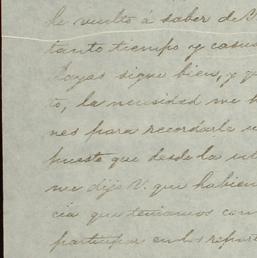 he vuelto á saber de V
tanto tiempo y
sigue bien, y
to, la necesidad me
nes para recordarle
puesto que desde la
me dijo V. que habien
cia que teniamos con
participar en los